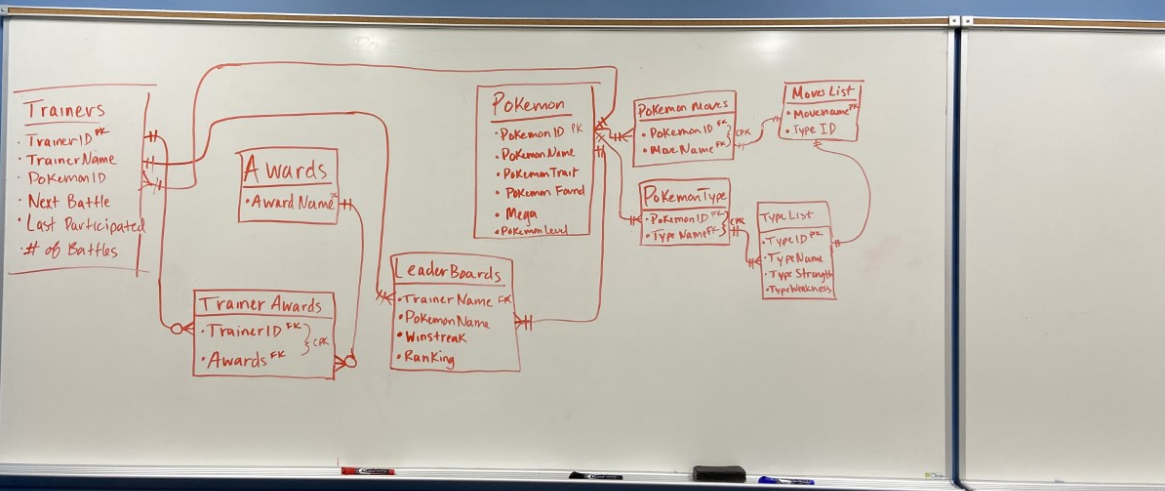 Trainers
• TrainerID PK
• TrainerName
• PokemonID
• Next Battle
• Last Participated
• # of Battles
Awards
• AwardName
Trainer Awards
• TrainerID FK
• Awards FK
CPK
LeaderBoards
• Trainer Name FK
• PokemonName
• Winstreak
• Ranking
Pokemon
• PokemonID PK
• PokemonName
• PokemonTrait
• Pokemon Found
• Mega
• PokemonLevel
Pokemon Moves
• PokemonID FK
• MoveName FK
CPK
PokemonType
• PokemonID FK
• TypeName FK
CPK
Moves List
• Movename PK
• Type ID
Type List
• TypeID PK
• TypeName
• TypeStrength
• TypeWeakness